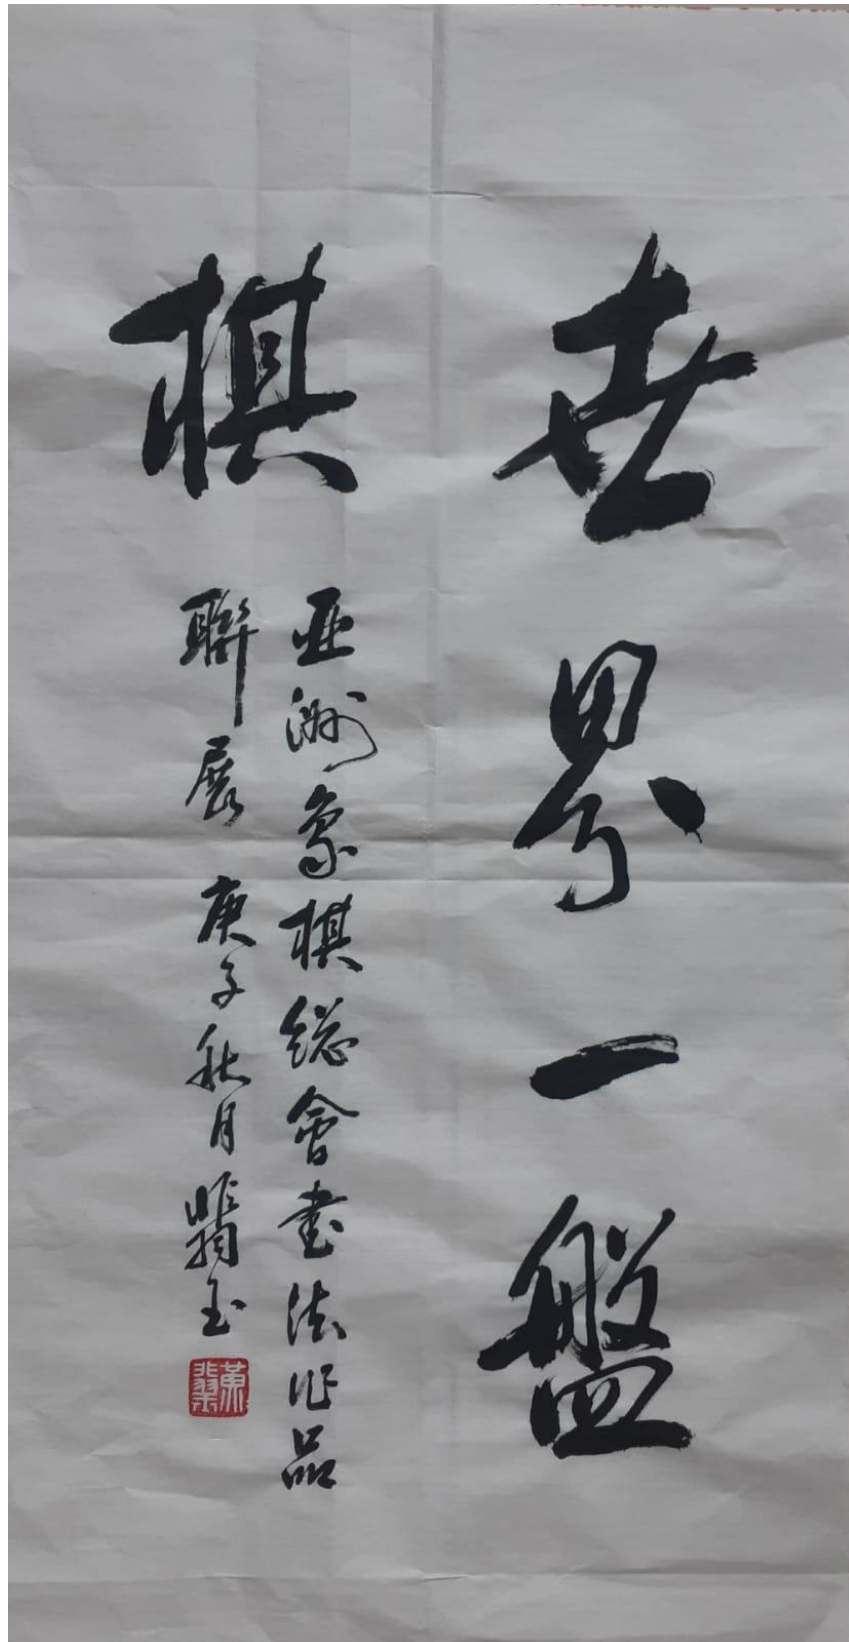 世界一盤
棋
亚洲象棋總會書法作品
聯展 庚子秋月 翡玉
黄翡